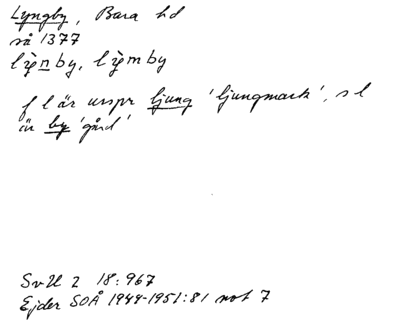 Lyngby, Bara hd
så 1377
by, by
f l är urspr ljung 'ljungmark', s l
är by 'gård'
SvU 2 18:967
Ejder SOÅ 1949-1951:81 not 7